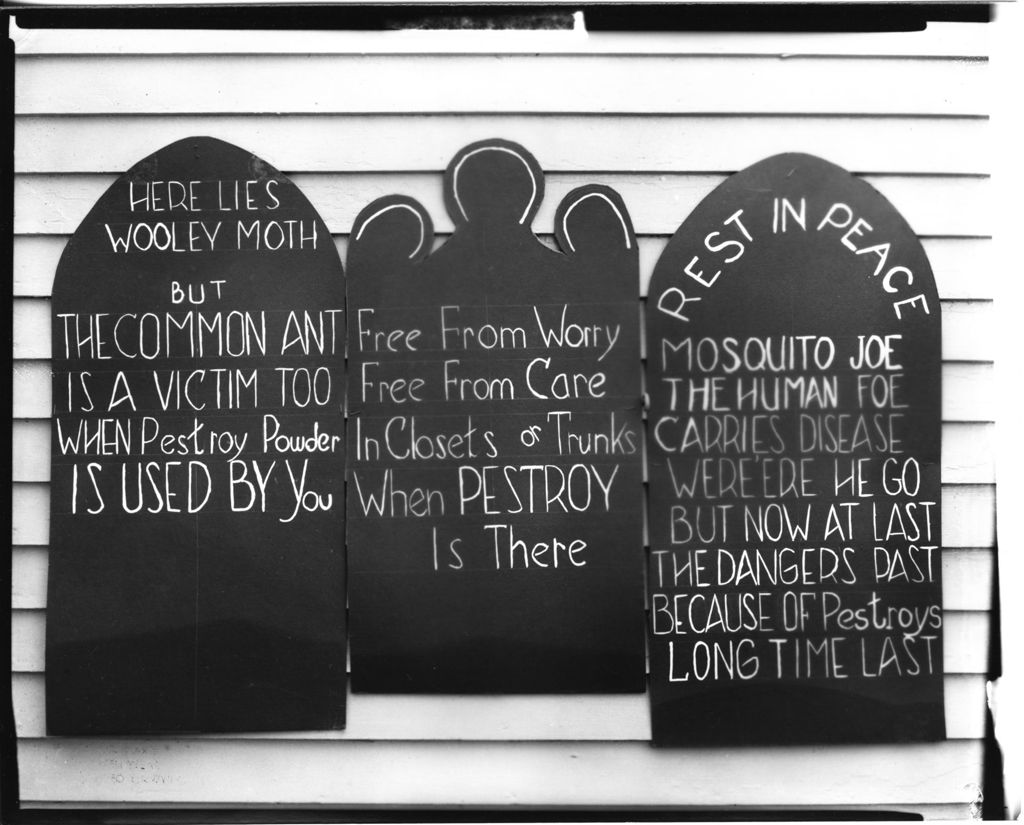 HERE LIES
WOOLEY MOTH
BUT
THE COMMON ANT
IS A VICTIM TOO
WHEN Pestroy Powder
IS USED BY You
Free From Worry
Free From Care
In Closets or Trunks
When PESTROY
Is There
REST IN PEACE
MOSQUITO JOE
THE HUMAN FOE
CARRIES DISEASE
WERE'ERE HE GO
BUT NOW AT LAST
THE DANGERS PAST
BECAUSE OF Pestroys
LONG TIME LAST